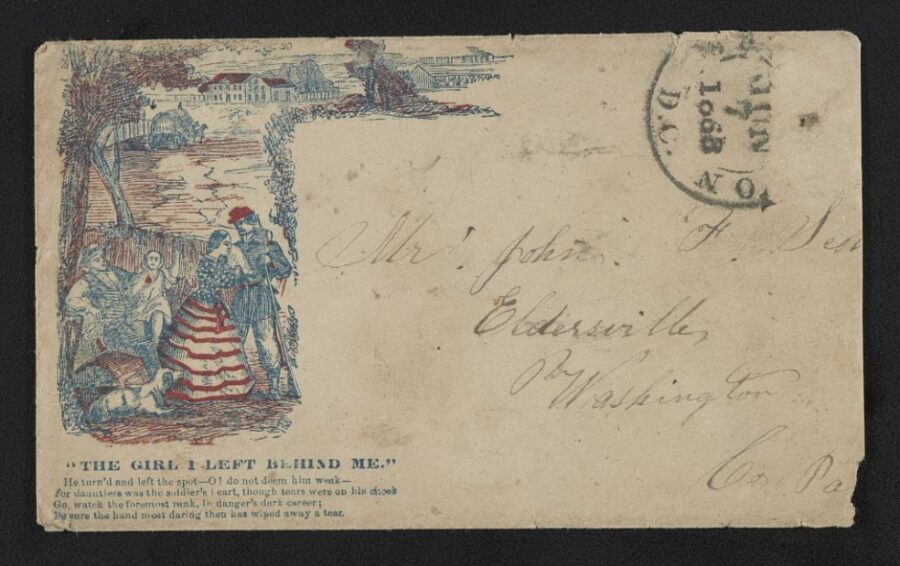 JUN
7
1863
D.C.
O N
Mr. John F.
Eldersville
Washington
Co Pa
"THE GIRL I LEFT BEHIND ME."
He turn'd and left the spot—O! do not deem him weak—
For dauntless was the soldier's heart, though tears were on his cheek
Go, watch the foremost rank, in danger's dark career;
Be sure the hand most daring then has wiped away a tear.